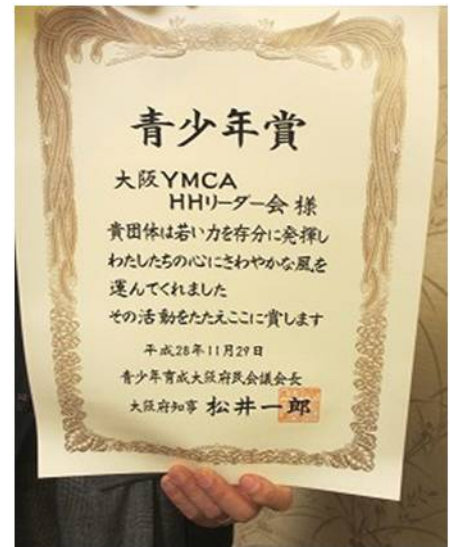 青少年賞
大阪YMCA
HHリーダー会 様
貴団体は若い力を存分に発揮し
わたしたちの心にさわやかな風を
運んでくれました
その活動をたたえここに賞します
平成28年11月29日
青少年育成大阪府民会議会長
大阪府知事 松井一郎